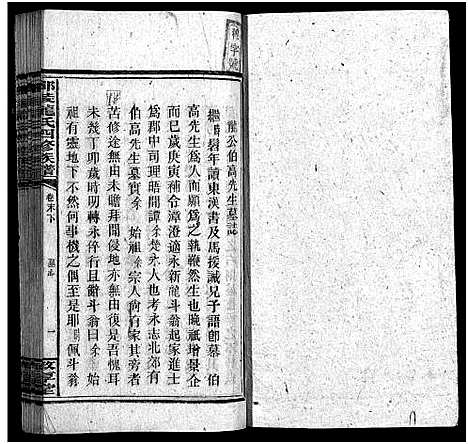 龍公伯高先生墓誌
繼時髫年讀東漢書及馬援誡兄子語即慕伯
高先生為人而願為之執鞭然生也晚祇增景企
而已歲庚寅補令漳澄適永新龍斗翁起家進士
為郡中司理晤間譚徐焚人也考永志北郊有
伯高先生墓實徐始祖徐宗人向有家其旁者
苦修途無由未嘗拜閒侵地亦無由復是吾愧耳
未幾丁卯歲時明轉永倅行且辭斗翁曰徐始
祖有靈地下不然何事機之偶至是耶佩斗翁
龍氏四修族譜
卷末下
墓志
一
敦厚堂